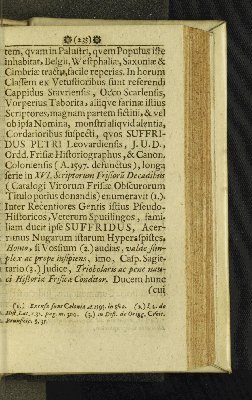 (23)
tem, quam in Palustri, quem Populus iste
inhabitat, Belgii, Westphaliæ, Saxoniæ &
Cimbriæ tractu, facile reperias. In horum
Classem ex Vetustioribus sunt referendi
Cappidus Stavriensis, Occo Scarlensis,
Vorperius Taborita, aliique farinæ istius
Scriptores, magnam partem fictitii, & vel
ob ipsa Nomina, monstri aliquid alentia,
Cordatioribus suspecti, quos SUFFRI-
DUS PETRI Leovardiensis, J. U. D.,
Ordd. Frisiæ Historiographus, & Canon.
Coloniensis (A. 1597. defunctus), longa
serie in XVI. Scriptorum Frisiorũ Decadibus
(Catalogi Virorum Frisiæ Obscurorum
Titulo potius donandis) enumeravit (1.)
Inter Recentiores Gentis istius Pseudo-
Historicos, Veterum Sputilingos, fami-
liam ducit ipse SUFFRIDUS, Acer-
rimus Nugarum istarum Hyperaspistes,
Homo, si Vossium (2.) audias, valde sim-
plex ac prope insipiens, imo, Casp. Sagit-
tario (3.) Judice, Triobolaris ac pene nau-
ci Historiæ Frisicæ Conditor. Ducem hunc
(cui
(1.) Excusæ sunt Coloniæ A. 1593. in 8vo. (2.) L. 2. de
Hist. Lat. c. 31. pag. m. 300. (3.) in Diss. de Origg. Cœnt.